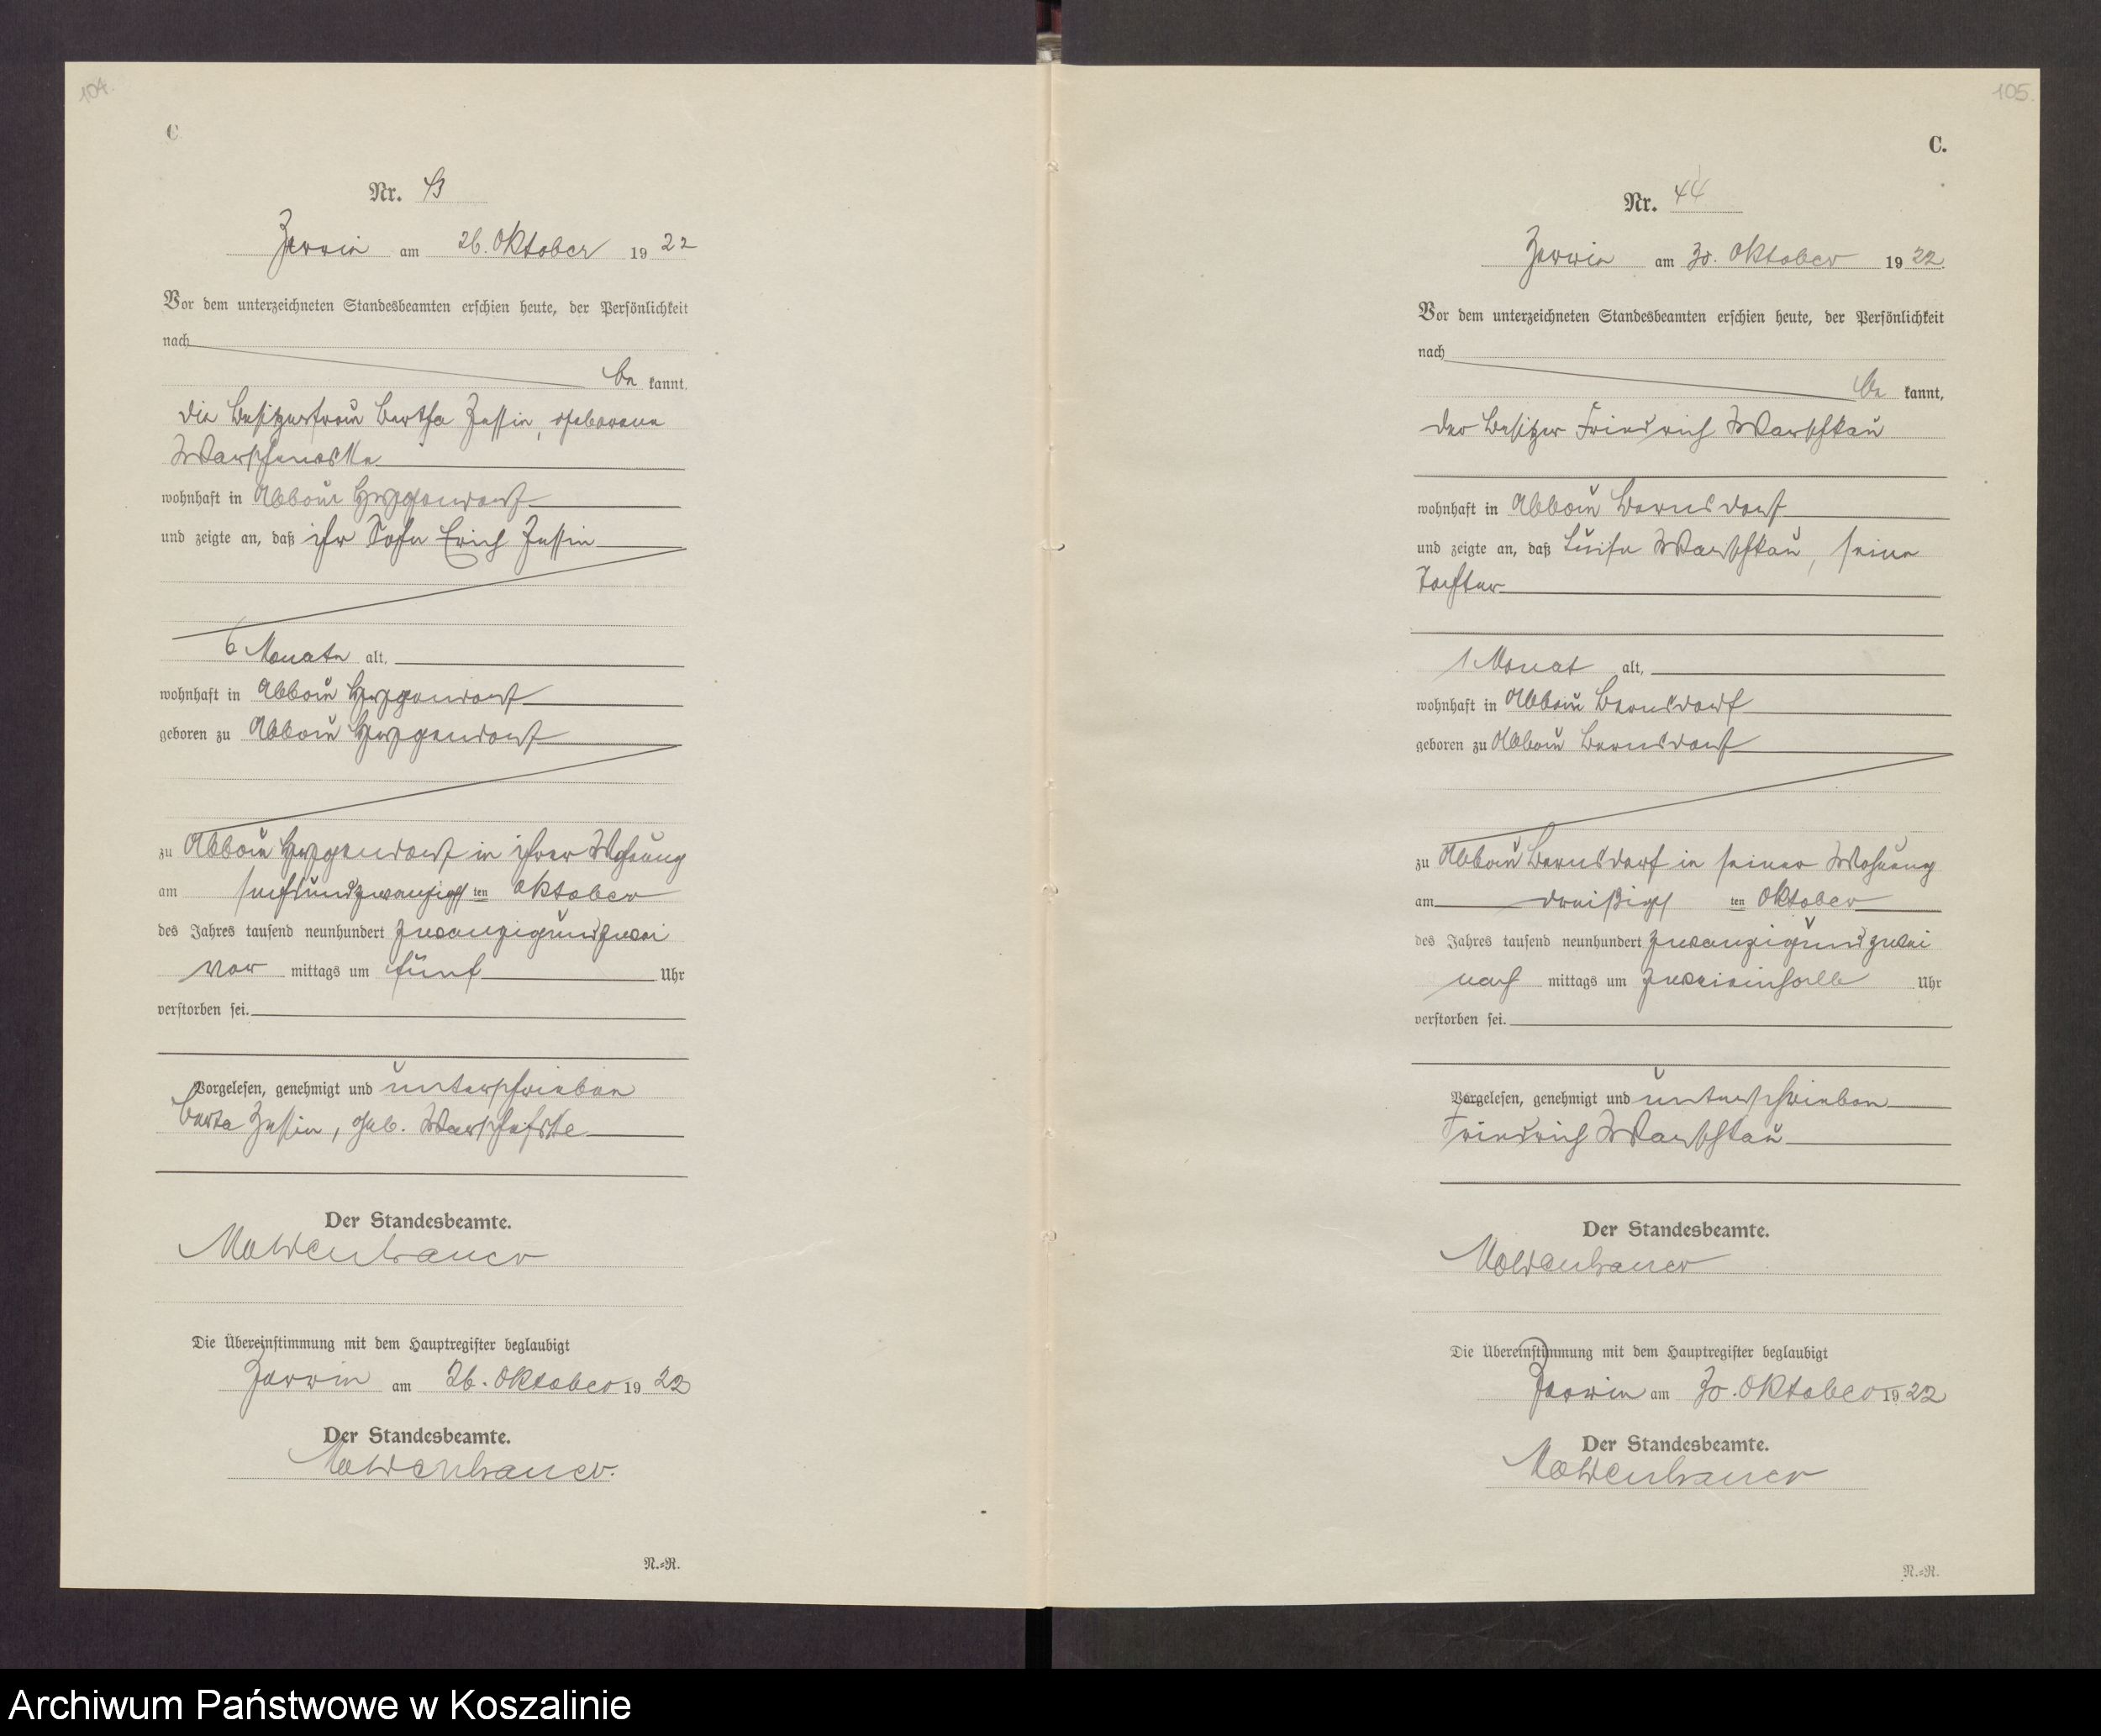 104.
C
Nr. 43
Zarwin am 26. Oktober 1922
Vor dem unterzeichneten Standesbeamten erschien heute, der Persönlichkeit
nach
be kannt,
die Besitzerfrau Bertha Zessin, geborene
wohnhaft in Abbau
und zeigte an, daß ihr Sohn Erich Zessin
6 Monate alt,
wohnhaft in Abbau
geboren zu Abbau
zu Abbau in ihrer Wohnung
am sechsundzwanzigsten Oktober
des Jahres tausend neunhundert zwanzigundzwei
vor mittags um fünf Uhr
verstorben sei.
Vorgelesen, genehmigt und unterschrieben
Berta Zessin, geb.
Der Standesbeamte.
Moldenhauer
Die Übereinstimmung mit dem Hauptregister beglaubigt
Zarwin am 26. Oktober 1922
Der Standesbeamte.
Moldenhauer.
N.=R.
105.
C.
Nr. 44
Zarwin am 30. Oktober 1922.
Vor dem unterzeichneten Standesbeamten erschien heute, der Persönlichkeit
nach
be kannt,
der Besitzer Friedrich Warschkau
wohnhaft in Abbau Bernsdorf
und zeigte an, daß Luise Warschkau, seine
Tochter
1 Monat alt,
wohnhaft in Abbau Bernsdorf
geboren zu Abbau Bernsdorf
zu Abbau Bernsdorf in seiner Wohnung
am dreißigsten Oktober
des Jahres tausend neunhundert zwanzigund zwei
nach mittags um zweieinhalb Uhr
verstorben sei.
Vorgelesen, genehmigt und unterschrieben
Friedrich Warschkau
Der Standesbeamte.
Moldenhauer
Die Übereinstimmung mit dem Hauptregister beglaubigt
Zarwin am 30. Oktober 1922
Der Standesbeamte.
Moldenhauer
N.=R.
Archiwum Państwowe w Koszalinie